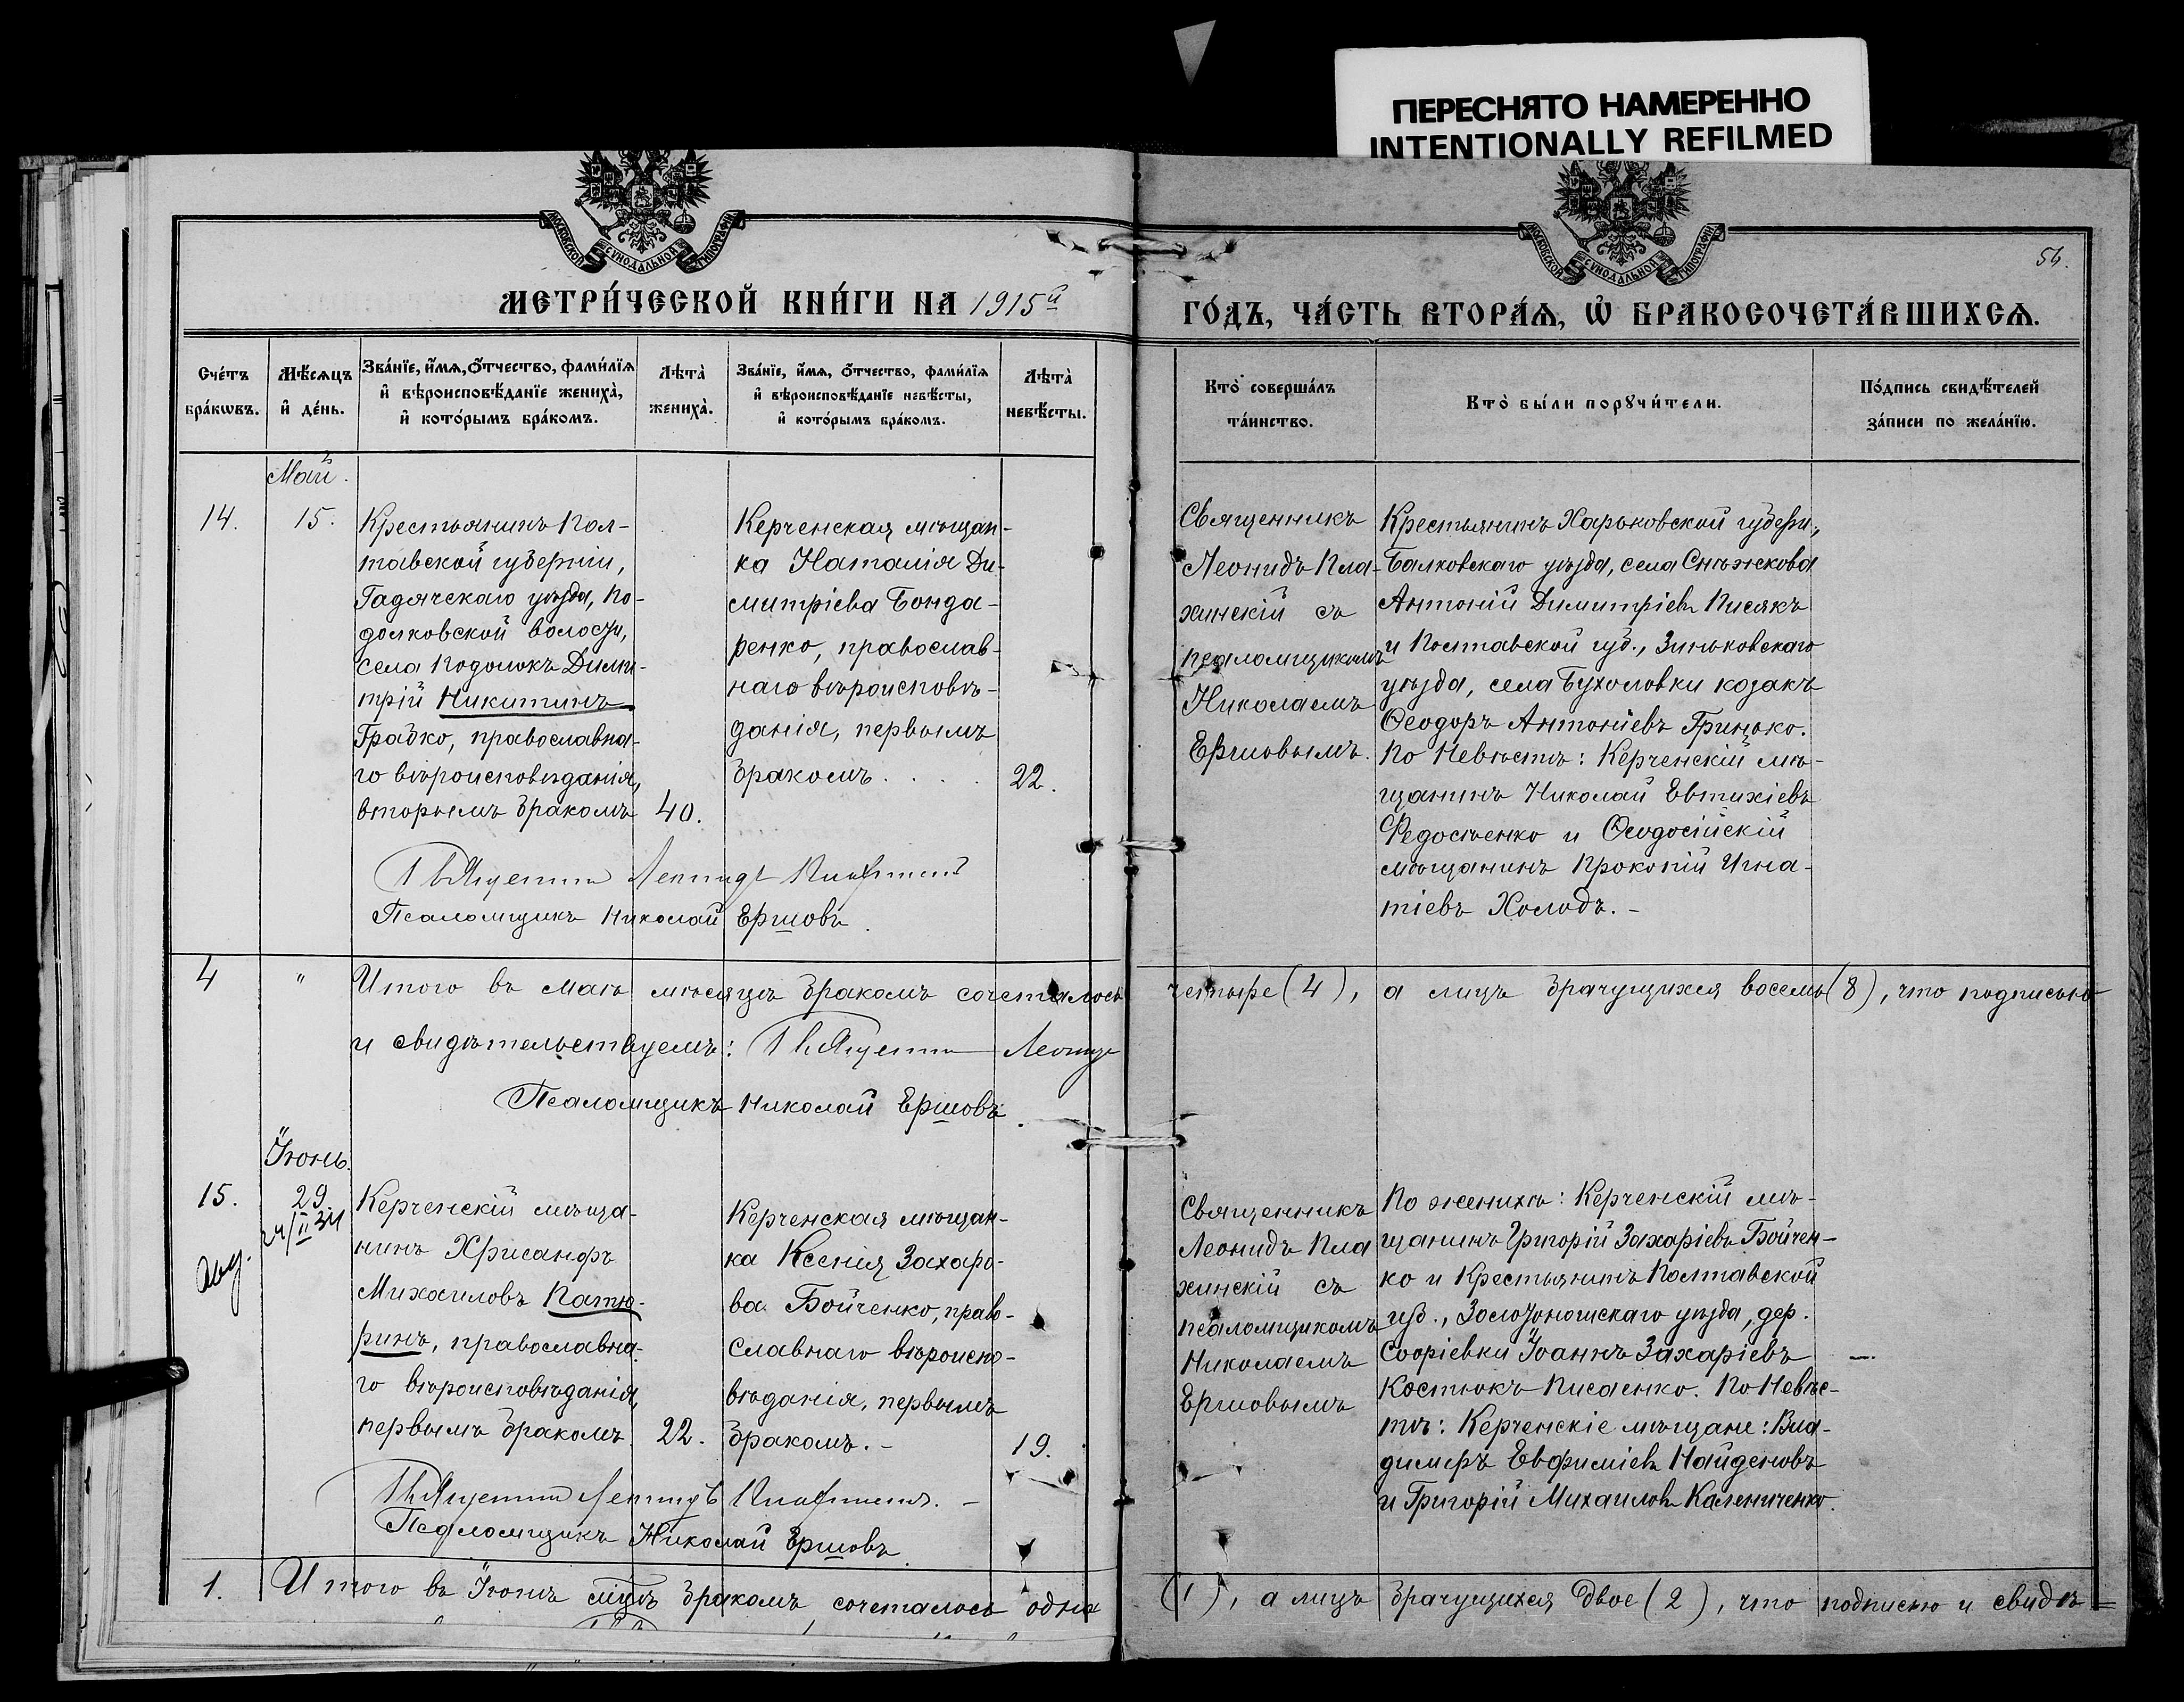 ПЕРЕСНЯТО НАМЕРЕННО
INTENTIONALLY REFILMED
МОСКОВСКОЙ СУНОДАЛЬНОЙ ТИПОГРАФІИ
МОСКОВСКОЙ СУНОДАЛЬНОЙ ТИПОГРАФІИ
54.
МЕТРИ́ЧЕСКОЙ КНИ́ГИ НА 1915й
ГО́ДЪ, ЧА́СТЬ ВТОРА́Ѧ, Ѡ҆ БРАКОСОЧЕТА́ВШИХСѦ.
Сче́тъ
бра́кѡвъ.
Мѣ́сяцъ
и҆ де́нь.
Зва́нїе, и҆́мя, ѻ҆́тчество, фами́лїя
и҆ вѣроисповѣ́данїе жениха̀,
и҆ кото́рымъ бра́комъ.
Лѣта̀
жениха̀.
Зва́нїе, и҆́мя, ѻ҆́тчество, фами́лїя
и҆ вѣроисповѣ́данїе невѣ́сты,
и҆ кото́рымъ бра́комъ.
Лѣта̀
невѣ́сты.
Кто̀ соверша́лъ
та́инство.
Кто̀ бы́ли порꙋчи́тели.
По́дпись свидѣ́телей
за́писи по жела́нїю.
Май.
14.
15.
Крестьянинъ Пол-
тавской губерніи,
Гадячскаго уѣзда, По-
долковской волости,
села Подолокъ Дими-
трій Никитинъ
Грабко, православна-
го вѣроисповѣданія,
вторымъ бракомъ
40.
Керченская мѣщан-
ка Наталія Ди-
митріева Бонда-
ренко, православ-
наго вѣроисповѣ-
данія, первымъ
бракомъ . . . .
22.
Священникъ
Леонидъ Пла-
хинскій съ
псаломщикомъ
Николаемъ
Ершовымъ.
Крестьянинъ Харьковской губерн.,
Балковскаго уѣзда, села Снѣжкова
Антоній Димитріевъ Писякъ
и Полтавской губ., Зиньковскаго
уѣзда, села Бухоловки козакъ
Ѳеодоръ Антоніевъ Гринько.
По Невѣстѣ: Керченскій мѣ-
щанинъ Николай Евтихіевъ
Федосѣенко и Ѳеодосійскій
мѣщанинъ Прокопій Игна-
тіевъ Холодъ. -
Священникъ Леонидъ Плахинскій
Псаломщикъ Николай Ершовъ.
4 " Итого въ маѣ мѣсяцѣ бракомъ сочеталось четыре (4), а лицъ брачущихся восемь (8), что подписью
и свидѣтельствуемъ: Священникъ Леонидъ
Псаломщикъ Николай Ершовъ.
Іюнь.
15.
29
24/II 34
Керченскій мѣща-
нинъ Хрисанфъ
Михаиловъ Катю-
ринъ, православна-
го вѣроисповѣданія,
первымъ бракомъ.
22.
Керченская мѣщан-
ка Ксенія Захаро-
ва Бойченко, право-
славнаго вѣроиспо-
вѣданія, первымъ
бракомъ. -
19.
Священникъ
Леонидъ Пла
хинскій съ
псаломщикомъ
Николаемъ
Ершовымъ
По женихѣ: Керченскій мѣ-
щанинъ Григорій Захаріевъ Бойчен-
ко и Крестьянинъ Полтавской
губ., Золотоношскаго уѣзда, дер.
Софіевки Іоаннъ Захаріевъ
Костюкъ Писаенко. По Невѣс-
тѣ: Керченскіе мѣщане: Вла-
димиръ Евфиміевъ Найденовъ
и Григорій Михаиловъ Калениченко.
Священникъ Леонидъ Плахинскій. -
Псаломщикъ Николай Ершовъ.
1. Итого въ Іюнѣ мцѣ бракомъ сочеталось одна (1), а лицъ брачущихся двое (2), что подписью и свидѣ=